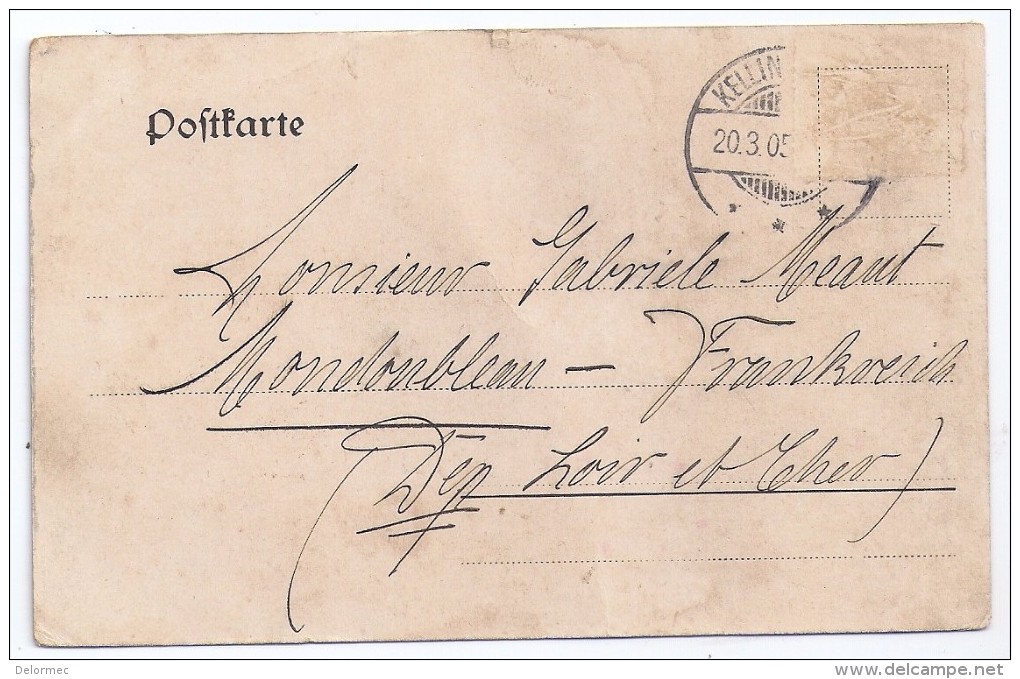 Postkarte
KELLIN
20.3.05
Monsieur Gabriele Meaut
Mondoubleau — Frankreich
(Dép Loir et Cher)
Delormec
www.delcampe.net